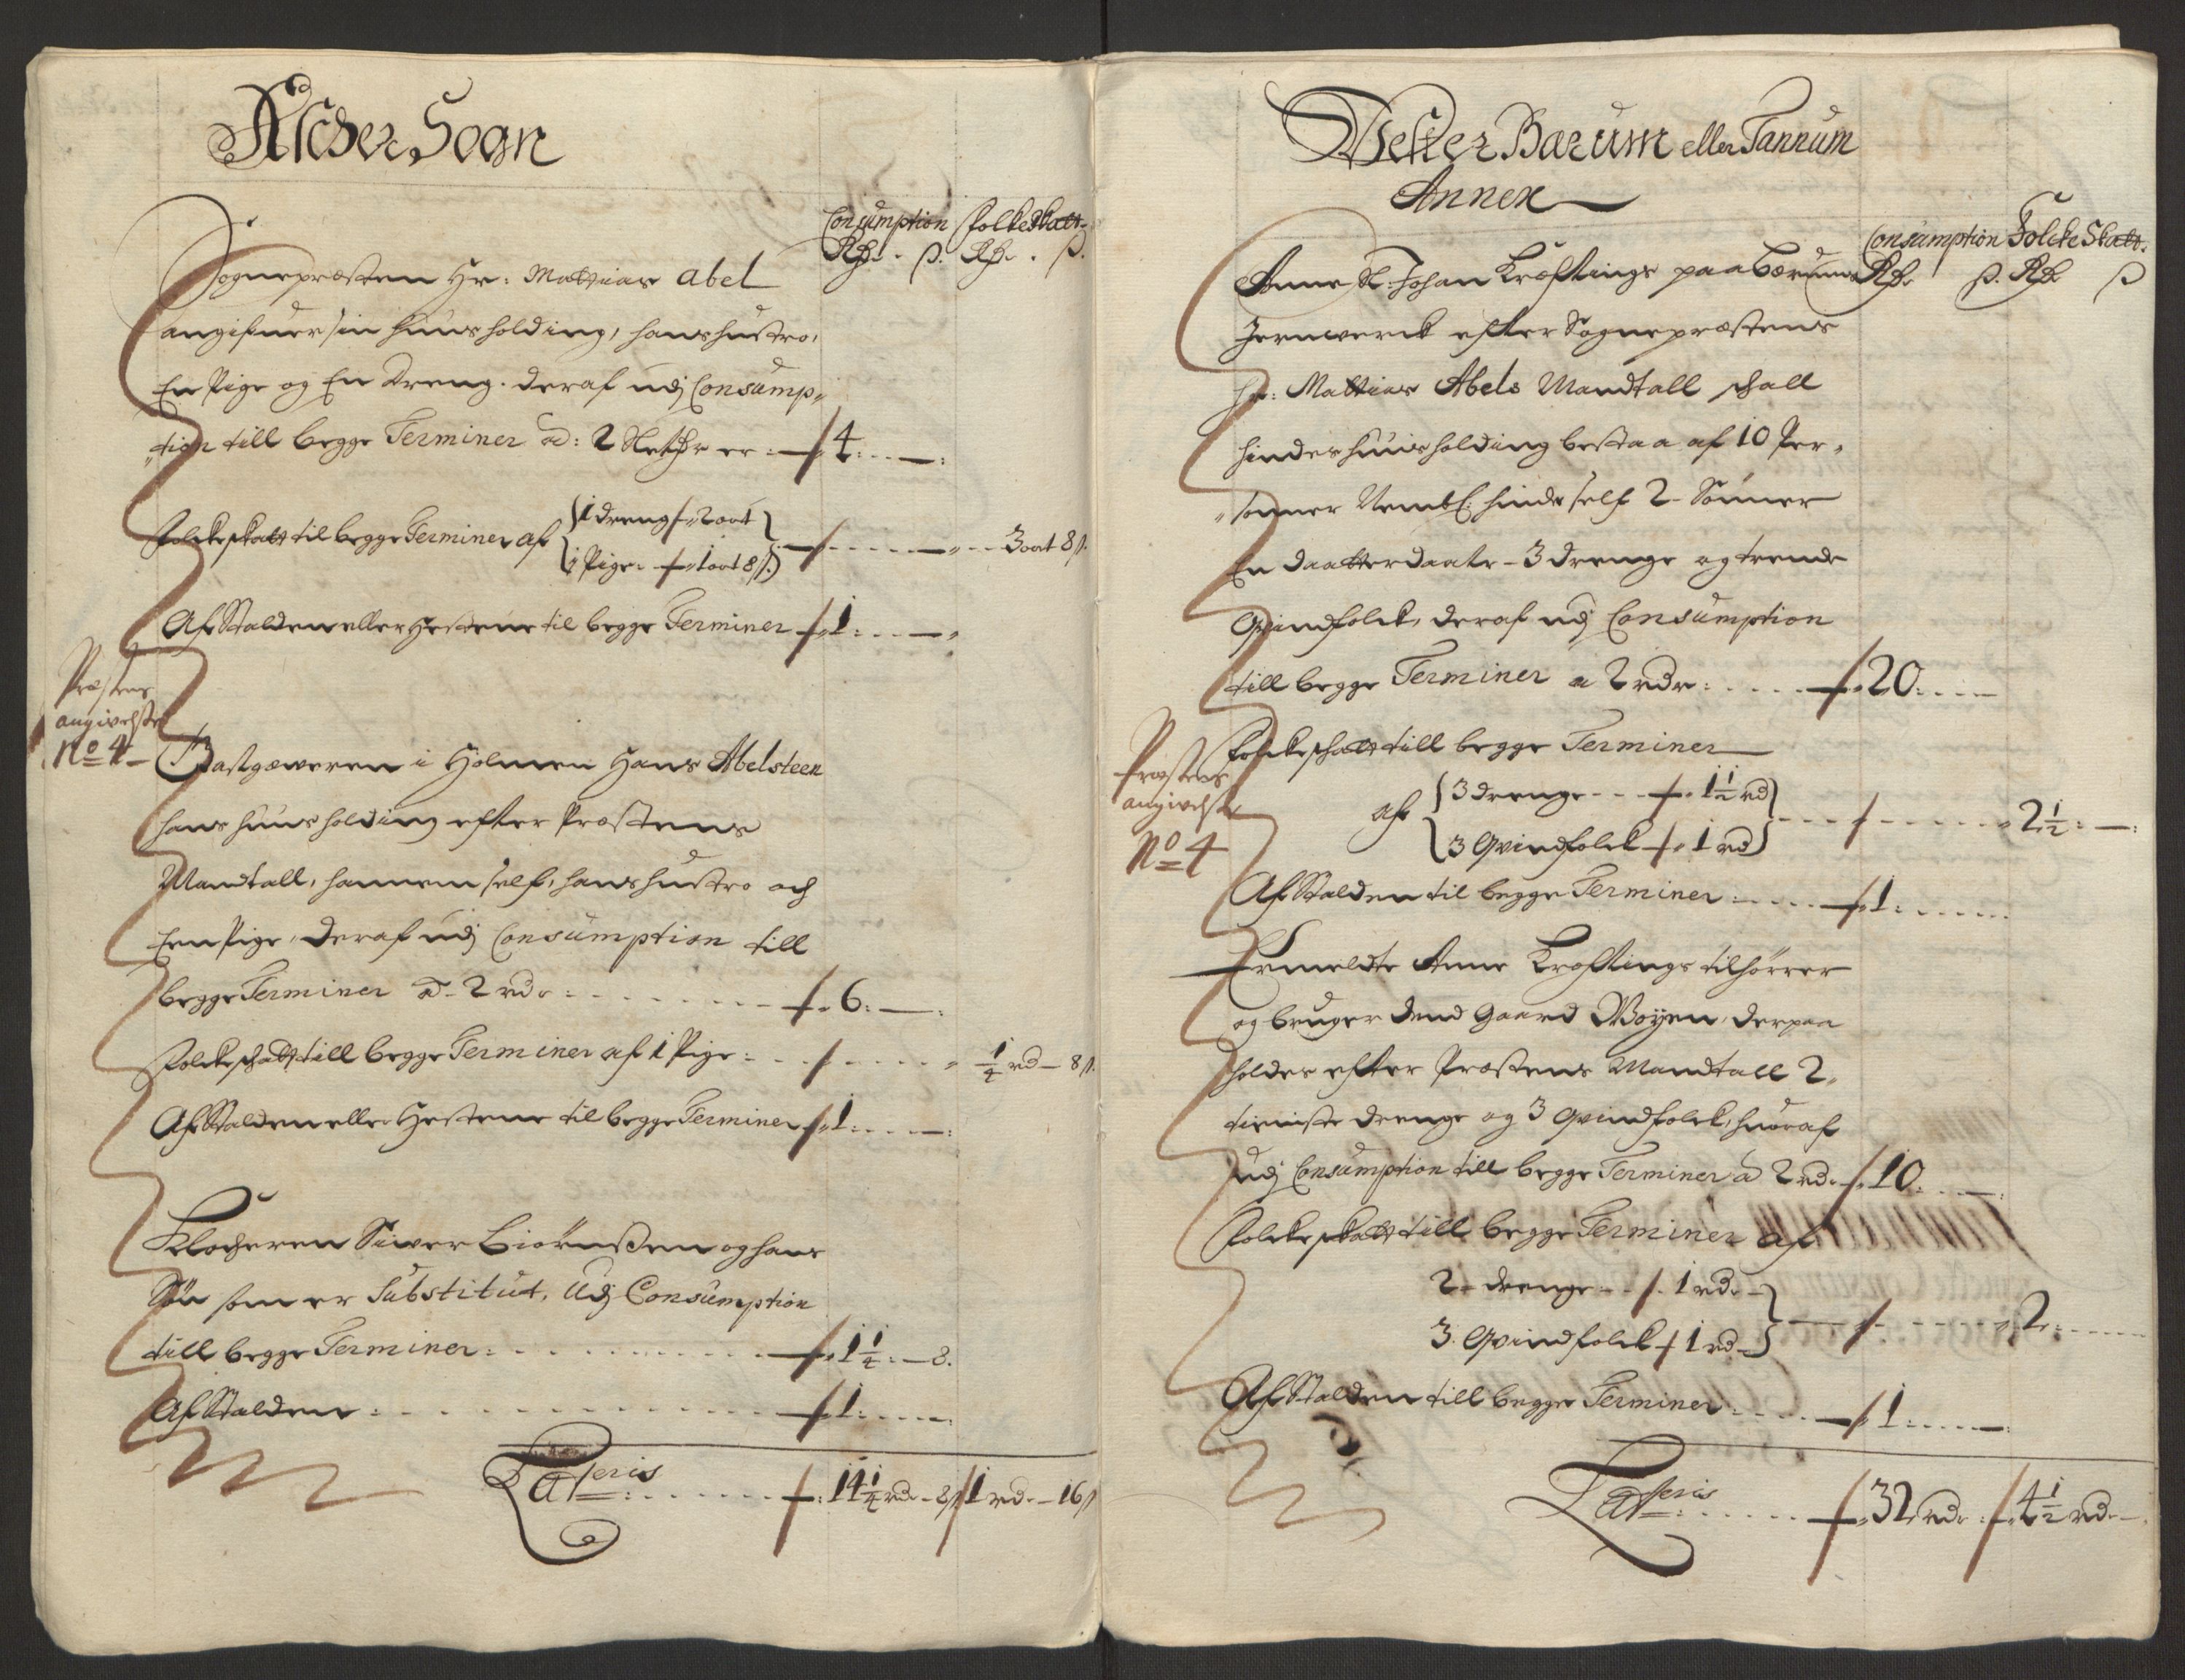 Ascher Sogn
Consumption Folkeskatt.
Rdr. ß. Rdr. ß.
Sognepræsten Hr: Mattias Abel
angifuer sin huusholding, hans hustro,
En Pige og En Dreng. deraf udj Consump„
„tion till begge Terminer ad: 2 Rthlr er: 4: —:
Folckeskatt til begge Terminer af
1 dreng 2 ort
1 Pige 1 ort 8 ß.
3 ort 8 ß.
Af Stalden eller Hestene til begge Terminer 1: —
Præstens
angivelse
No 4
Gastgæweren i Holmen Hans Abelsteen
hans huusholding efter Præstens
Mandtall, hannem self, hans hustro och
Een Pige, deraf udj Consumption till
begge Terminer a 2 rdr: 6: —:
Folckeschatt till begge Terminer af 1 Pige: ¼ rd — 8 ß.
Af Stalden eller Hestene til begge Terminer 1: —:
Klocheren Siwer Biörnßen og hans
Sön som er Substitut, Udj Consumption
till begge Terminer: 1¼: — 8.
Af Stalden: 1: —:
Lateris: 14¼ rdr — 8 ß 1 rdr — 16 ß
Vester Bærum eller Tannum
Annex
Consumption Folcke Skatt.
Rdr. ß. Rdr ß
Anne Sl. Johan Kræftings paa Bærums
Jernwerck efter Sognepræstens
Hr: Mattias Abels Mandtall schall
hindes huusholding bestaa af 10 Per„
„soner Nembl: hinde self 2 Sönner
En daatterdaater 3 drenge og trende
Qvindfolck, deraf udj Consumption
till begge Terminer a 2 rdr: 20: —
Folckeschatt till begge Terminer
Præstens
angivelse
No 4
af
3 drenge 1½ rd
3 Qvindfolck 1 rd
2½: —:
Af Stalden til begge Terminer: 1:
Ermeldte Anne Kræftings tilhörrer
og bruger dend Gaard Wøyen, derpaa
holdes efter Præstens Mandtall 2„
tieniste drenge og 3 Qvindfolck, huoraf
udj Consumption till begge Terminer a 2 rdr. 10: —:
Folckeskatt till begge Terminer af
2 drenge 1 rdr.
3 Qvindfolck 1 rd
2:
Af Stalden till begge Terminer: 1: —:
Lateris: 32 rdr: 4½ rdr —